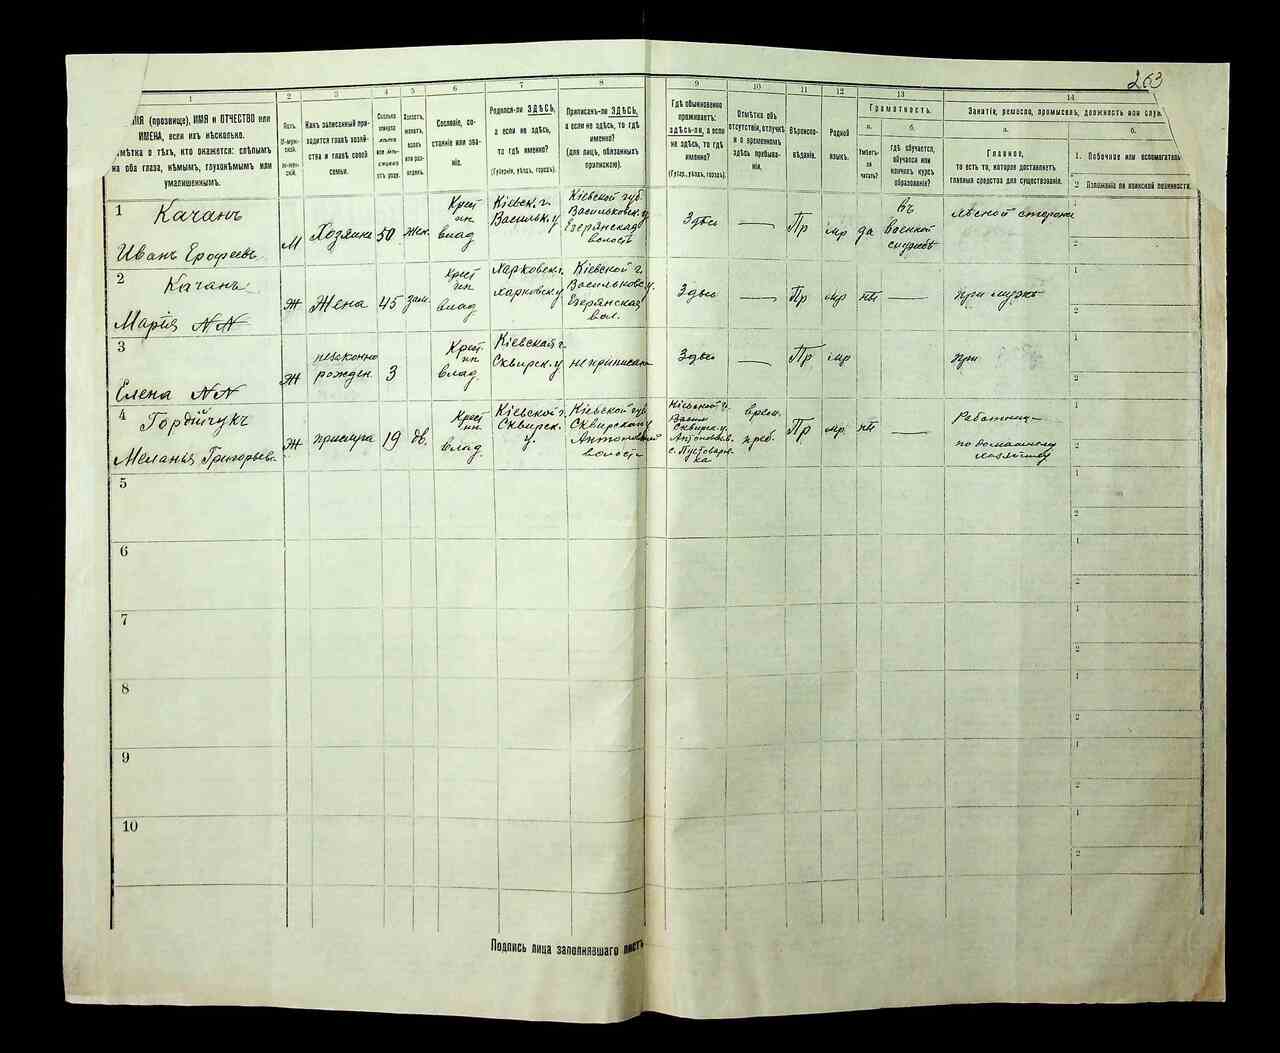 263
1
2
3
4
5
6
7
8
9
10
11
12
13
14
ИМЯ (прозвище), ИМЯ и ОТЧЕСТВО или
ИМЕНА, если ихъ нѣсколько.
Отмѣтка о тѣхъ, кто окажется: слѣпымъ
на оба глаза, нѣмымъ, глухонѣмымъ или
умалишеннымъ.
Полъ
М-муж-
ской.
Ж-жен-
скій.
Какъ записанный при-
ходится главѣ хозяй-
ства и главѣ своей
семьи.
Сколько
Холостъ,
женатъ,
вдовъ
или раз-
веденъ.
Сословіе, со-
стояніе или зва-
ніе.
Родился-ли ЗДѢСЬ,
а если не здѣсь,
то гдѣ именно?
(Губернія, уѣздъ, городъ).
Приписанъ-ли ЗДѢСЬ,
а если не здѣсь, то гдѣ
именно?
(для лицъ, обязанныхъ
припискою).
Гдѣ обыкновенно
проживаетъ:
здѣсь-ли, а если
не здѣсь, то гдѣ
именно?
(Губер., уѣздъ, городъ).
Отмѣтка объ
отсутствіи, отлучкѣ
и о временномъ
здѣсь пребыва-
ніи.
Вѣроиспо-
вѣданіе.
Родной
языкъ.
Грамотность.
а.
Умѣетъ-
ли
читать?
б.
гдѣ обучается,
обучался или
кончилъ курсъ
образованія?
Занятіе, ремесло, промыселъ, должность или служ
а.
Главное,
то есть то, которое доставляетъ
главныя средства для существованія.
б.
1. Побочное или вспомогатель
2 Положеніе по воинской повинности.
1
Качанъ
Иванъ Ерофеевъ
М
Хозяинъ
50
жен.
Крест
ин
влад
Кіевск. г.
Васильк. у
Кіевской губ.
Васильковск. у.
Езерянская
волость
Здѣсь
—
Пр
мр
да
въ
военной
службѣ
лѣсной сторожъ
2
Качанъ
Марія NN
Ж
Жена
45
зам.
Крест
ин
влад
Харковск. г.
харковск. у
Кіевской г.
Васильковс у.
Езерянская
вол.
Здѣсь
—
Пр
мр
нѣт
—
при мужѣ
3
Елена NN
Ж
незаконно
рожден
3
Крест.
ин
влад.
Кіевская г.
Сквирск. у
неприписана
Здѣсь
—
Пр
мр
при
4
Гордійчукъ
Меланья Григорьев.
Ж
прислуга
19
дв.
Крест
ин.
влад.
Кіевской г.
Сквирск.
у.
Кіевской губ
Сквирскаго у
Антоновской
волости
Кіевской г.
Сквирск. у.
Антоновс. в.
с. Пустоварв-
ка
врем.
преб.
Пр
мр
нѣт
—
Работниц—
по домашнему
хозяйству
5
6
7
8
9
10
1
2
1
2
1
2
1
2
1
2
1
2
1
2
1
2
1
2
1
2
Подпись лица заполнявшаго листъ